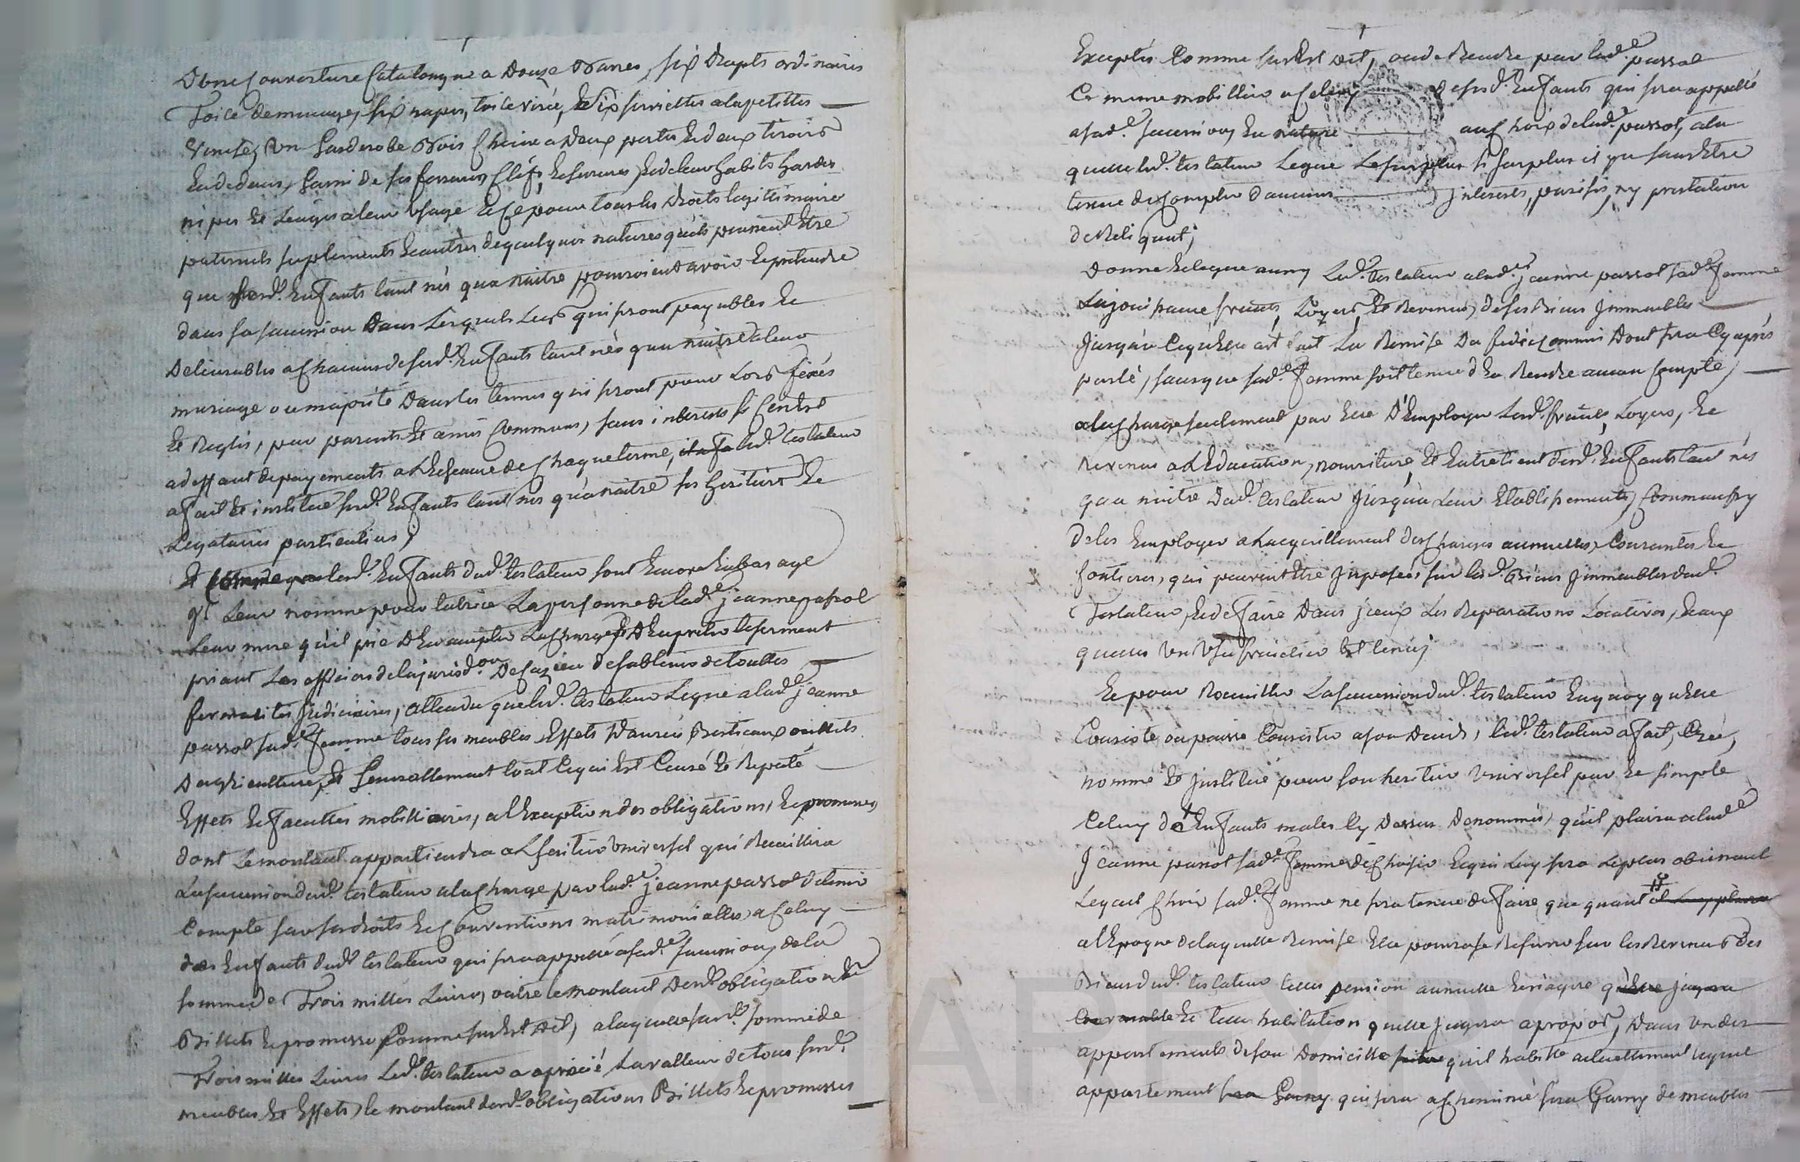 D'une Couverture Catalongne a Douze Barres, six Drapts ordinaires
Toile de menage, six napes, toile [...], Et six serviettes a la petitte
Venise, un Garderobe Bois Chêne a Deux portes Et deux tiroirs
Endedans, Garni de ses ferrures, Clefs, Et serrures, Ensemble leurs habits hardes
nipes Et Linges a leur Usage Et ce pour tous les Droits legitimaire
paternels suplements Et autres de quelques natures qu'ils peuvent Etre
que sesd. Enfants tant nés qu'a naître pourroient avoir Et pretendre
dans sa succession Dans Lesquels Legs qui seront payables Et
Delivrables a Chacuns de sesd. Enfants tant nés qu'a naître a leur
mariage ou majorité Dans les termes qui seront pour Lors fixés
Et Reglés, par parents Et amis Communs, sans interests si Ce n'est
a deffaut de payements a L'Echeance de Chaque terme, led. testateur
a fait Et institué sesd. Enfants tant nés qu'a naître ses heritiers Et
Legataires particuliers;
Et Comme que lesd. Enfants dud. testateur sont Encore En bas age
Leur nomme pour tutrice La personne de lad.e Jeanne passot
Leur mere qu'il prie D'En accepter La Charge Et D'En preter le serment
priant Les officiers de la jurisd.on De [...] de sablieres de touttes
formalités judiciaires, attendu que led. testateur Legue a lad.e Jeanne
passot sad.e femme tous ses meubles, Effets Danrées Bestiaux outtils
D'agriculture, Et Generallement tout Ce qui Est Censé Et Reputé
Effets Et facultés mobilliaires, a l'Exception des obligations, Et promesses
dont Le montant appartiendra a L'heritier universel qui Recuillira
La succession dud. testateur a la Charge par lad.e Jeanne passot de tenir
Compte sur ses droits Et Conventions matrimonialles a Celuy
des Enfants dud. testateur qui sera appellé a sad.e succession, de la
somme de Trois milles Livres, outre le montant Desd. obligations Et
Billets Et promesses Comme sus Est Dit, a laquelle susd.e somme de
Trois milles Livres Led. testateur a aprécié La valleur de tous sesd.
meubles Et Effets, le montant desd. obligations Billets Et promesses
Exceptés Comme sus Est Dit, au de Rendre par lad.e passot
Ce meme mobillier a Celuy de sesd. Enfants qui sera appellé
a sad.e succession, En nature au Choix de lad.e passot, a la
quelle led. testateur Legue Le surplus si surplus il y a sans Etre
tenue de Comples d'aucuns interests, parisis, ny prestation
de Reliquat;
Donne Et legue aussy Led. testateur a lad.e Jeanne passot sad.e femme
La jouissance fruits, Loyers, Et Revenus de ses Biens Immeubles
Jusqu'a Ce qu'Elle ait fait La Remise Du fideicommis Dont sera Cy apres
parlé, sans que sad.e femme soit tenue d'En Rendre aucun Compte,
a la Charge seulement par Elle D'Employer Lesd. fruits, Loyers, Et
Revenus a L'Education, nourriture Et Entretient desd. Enfants tant nés
qu'a naître Dud. testateur Jusqu'a Leur Etablissements, Comme aussy
de les Employer a L'acquittement des Charges annuelles, Courantes Et
fonsieres, qui peuvent Etre Imposées sur lesd. Biens Immeubles dud.
Testateur, Et de faire Dans jceux Les Reparations Locatives, Et aux
quelles un Usufruictier Est tenu;
Et pour Recuillir La succession dud. testateur En quoy qu'Elle
Consiste ou puisse Consister a son Deceds, led. testateur a fait, Créé,
nommé Et Institué pour son heritier universel pur Et simple
Celuy des Enfants males Cy Dessus Denommés, qu'il plaira a lad.e
Jeanne passot sad.e femme de Choisir Et qui Luy sera Le plus obeissant
Lequel Choix sad.e femme ne sera tenue de faire que quand il luy plaira
a l'Epoque de laquelle Remise Elle pourra se Reserver sur les Revenus des
Biens dud. testateur telle pension annuelle Et viagere qu'elle jugera
Convenable Et telle habitation qu'elle jugera a propos, Dans un des
appartements de son Domicille qu'il habitte actuellement lequel
appartement sera Garny qui sera a Cheminée sera Garny de meubles